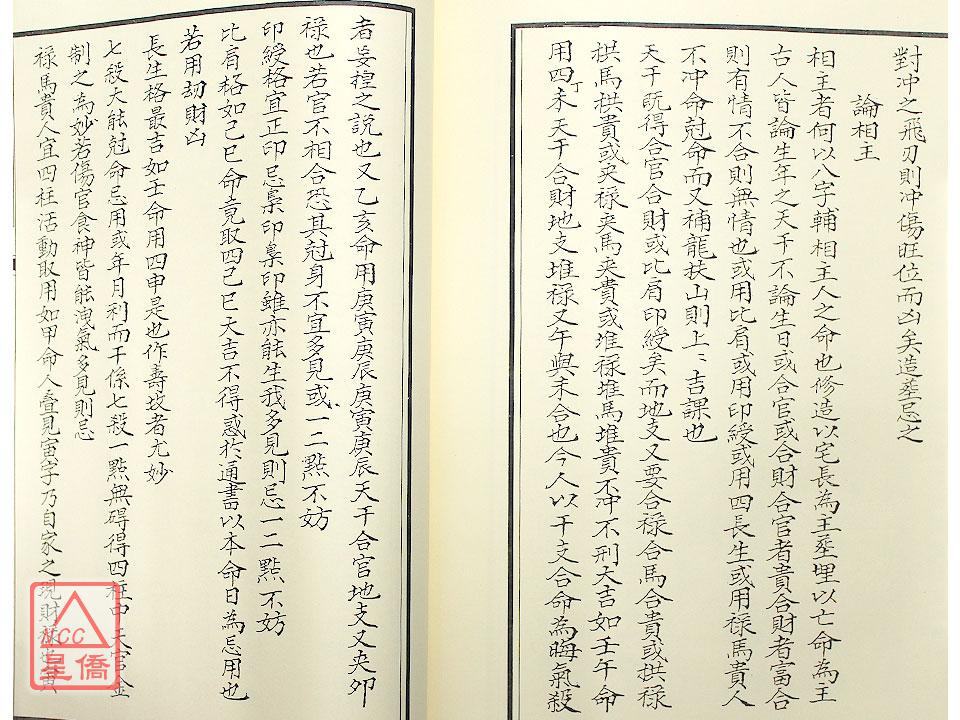 對冲之飛刃則冲傷旺位而凶矣造塟忌之
論相主
相主者何以八字輔相主人之命也修造以宅長為主塟埋以亡命為主
古人皆論生年之天干不論生日或合官或合財合官者貴合財者富合
則有情不合則無情也或用比肩或用印綬或用四長生或用祿馬貴人
不冲命尅命而又補龍扶山則上〻吉課也
天干既得合官合財或比肩印綬矣而地支又要合祿合馬合貴或拱祿
拱馬拱貴或夾祿夾馬夾貴或堆祿堆馬堆貴不冲不刑大吉如壬午命
用四丁未天干合財地支堆祿又午與未合也今人以干支合命為晦氣殺
者妄揑之說也又乙亥命用庚寅庚辰庚寅庚辰天干合官地支又夾卯
祿也若官不相合恐其尅身不宜多見或一二點不妨
印綬格宜正印忌梟印梟印雖亦能生我多見則忌一二點不妨
比肩格如己巳命竟取四己巳大吉不得惑於通書以本命日為忌用也
若用刧財凶
長生格最吉如壬命用四申是也作壽坟者尤妙
七殺大能尅命忌用或年月利而干係七殺一點無碍得四柱中天官金
制之為妙若傷官食神皆能洩氣多見則忌
祿馬貴人宜四柱活動取用如甲命人叠見寅字乃自家之現財祿也寅
HCC
星僑